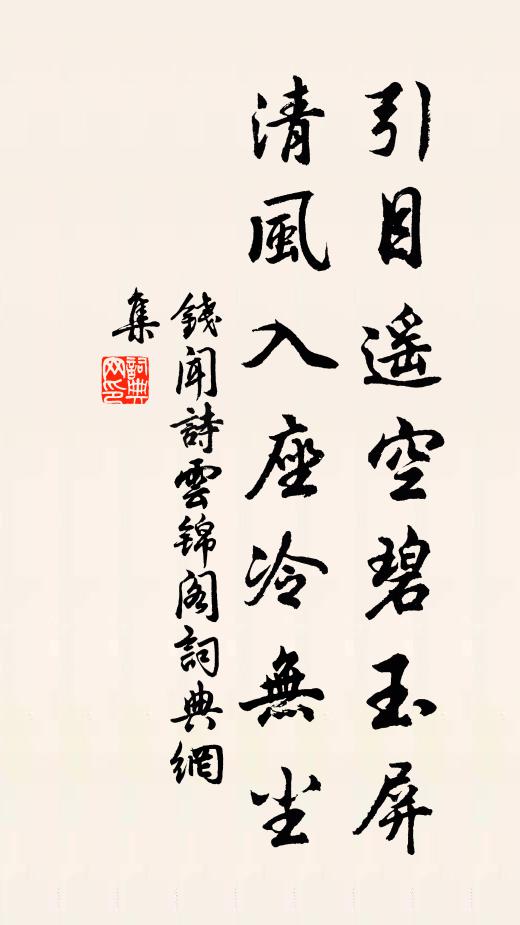 引目遥空碧玉屏
清風入座冷無尘
錢聞詩雲锦阁詞典網
集
詞典网印